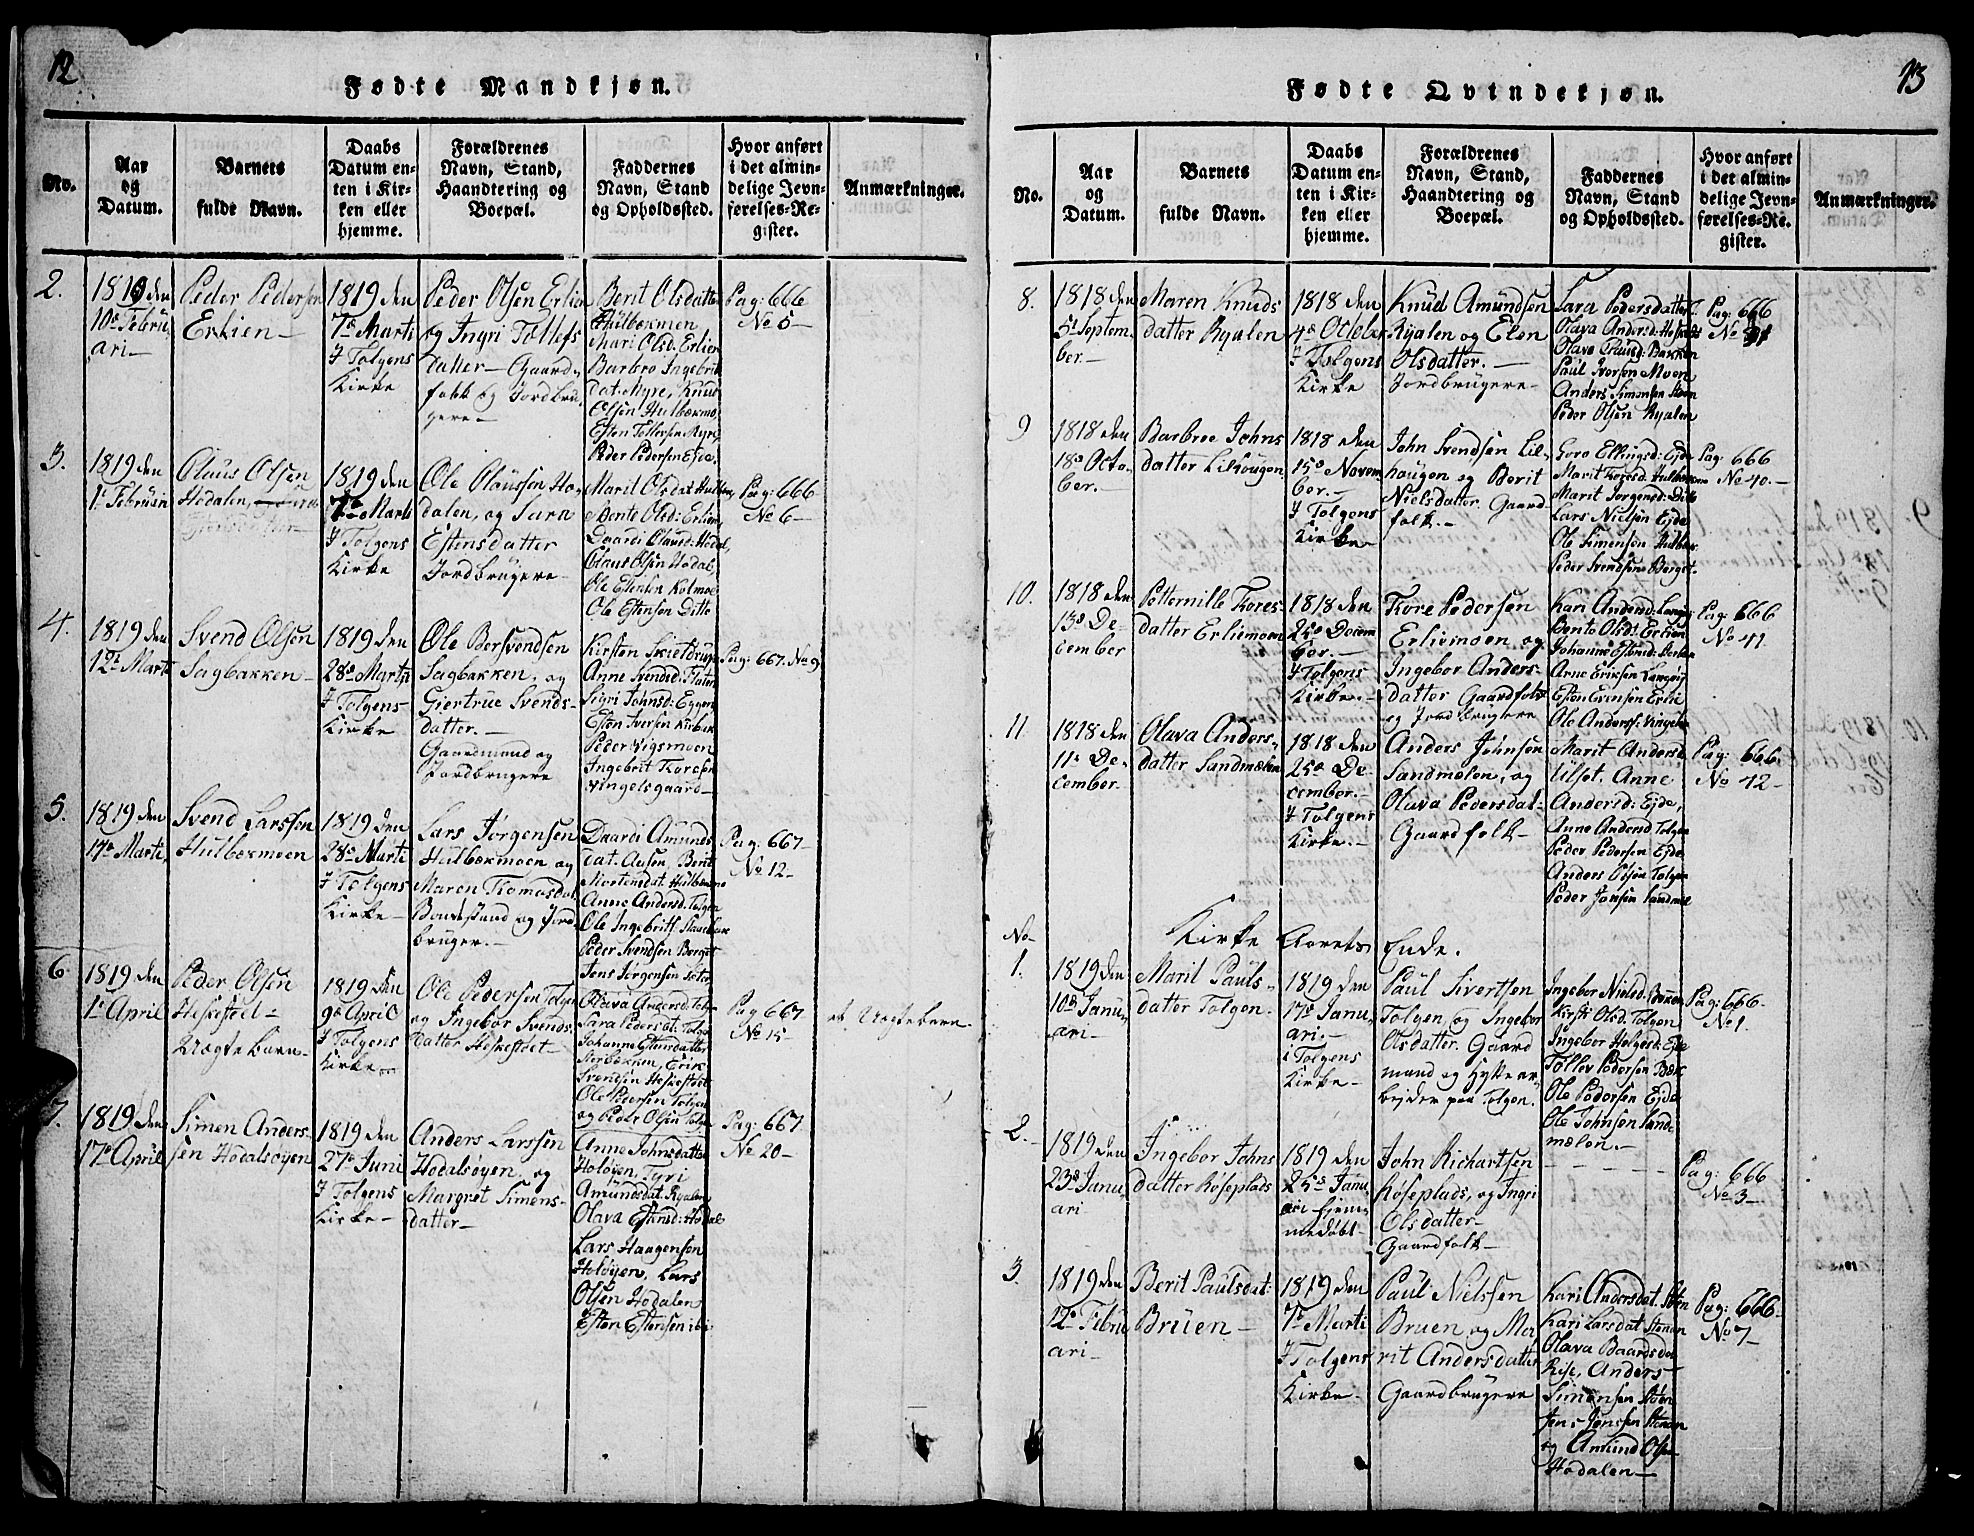 12
Fødte Mandkjøn.
No.
Aar
og
Datum.
Barnets
fulde Navn.
Daabs
Datum en-
ten i Kir-
ken eller
hjemme.
Forældrenes
Navn, Stand,
Haandtering og
Boepæl.
Faddernes
Navn, Stand
og Opholdssted.
Hvor anført
i det almin-
delige Jevn-
førelses-Re-
gister.
Anmærkninger.
2.
1819 den
10de Febru
ari-
Peder Pedersen
Erlien-
1819 den
7de Marti
I Tolgens
Kirke
Peder Olsen Erlien
og Ingri Tollefs
datter- Gaard
folk og Jordbru,
gere-
Berit Olsdatter
Hulbekmoen
Mari Olsd: Erlien
Barbro Ingebrit
dat: Myre, Knud
Olsen Hulbekmo,
Esten Tollefsen Myre,
Peder Pedersen Ejde.
Pag: 666
No 5-
3.
1819 den
1te Februari
Olaus Olsen
Hodalen,
1819 den
7de Marti
I Tolgens
Kirke
Ole Olaussen Ho-
dalen, og Sara
Estensdatter
Jordbrugere-
Marit Olsdat Hulbek,
Bente Olsd: Erlien,
Daardi Olausd: Hodal,
Olaus Olsen Hodal,
Ole Estensen Kolmoe
Ole Estensen Ditto
Pag: 666
No 6-
4.
1819 den
12te Marti
Svend Olsen
Sagbakken-
1819 den
28de Martii
I Tolgens-
Kirke
Ole Bersvendsen
Sagbakken, og
Giertrue Svends-
datter.-
Gaardmand og
Jordbrugere
Kirsten
Anne Svendsd:
Sigri Johnsd: Eggen
Esten Iversen Kirkbak
Peder Vigsmoen
Ingebrit Thoresen
Vingelsgaard-
Pag: 667. No 9
5.
1819 den
17de Marti,
Svend Larssen
Hulbekmoen
1819 den
28de Marti
I Tolgens
Kirke-
Lars Jørgensen
Hulbekmoen og
Maren Thomasdat,
Bondestand og Jord
bruger.-
Daardi Amunds
dat. Aasen, Berit
Mortensdat. Hulbekmo
Anne Andersd: Tolgen
Ole Ingebritf.
Peder Svendsen Berget
Jens Jørgensen
Pag: 667-
No 12-
6.
1819 den
1te April
Peder Olsen
Heskestoel-
Uægte barn-
1819 den
9de April
I Tolgens
Kirke-
Ole Pedersen Tolgen
og Ingebor Svends,
datter Heskestoel-
Olava Andersd: Tol-
Sara Pedersd: Tolgen
Johanne Estensdatter
Storbekken, Erik
Svendsen Heskestoel
Ole Pedersen Tolgen
og Peder Olsen Tolgen
Pag 667
No 15-
et Uægte barn
7.
1819 den
17de April
Simen Anders-
sen Hodalsøyen
1819 den
27de Juni
I Tolgens
Kirke-
Anders Larssen
Hodalsøyen, og
Margret Simens-
datter-
Anne Johnsdatter
Holøyen, Tyri
Amundsdat. Ryalen
Olava Estensd: Hodal
Lars Haagensen
Holøyen, Lars
Olsen Hodalen
Esten Estensen ibi-
Pag: 667.
No 20-
13
Fødte Qvindekjøn.
No.
Aar
og
Datum.
Barnets
fulde Navn.
Daabs
Datum en-
ten i Kir-
ken eller
hjemme.
Forældrenes
Navn, Stand,
Haandtering og
Boepæl.
Faddernes
Navn, Stand
og Opholdssted.
Hvor anført
i det almin-
delige Jevn-
førelses-Re-
gister.
Anmærkninger.
8.
1818 den
5t Septem
ber.-
Maren Knuds
datter Ryalen
1818 den
4de October
I Tolgens
Kirke
Knud Amundsen
Ryalen og Elen
Olsdatter.-
Jordbrugere-
Sara Pedersdatter
Olava Andersd:
Olava Paulsd: Bakken
Paul Iversen Moen
Anders Simensen Moen
Peder Olsen Ryalen
Pag: 666
No
9
1818 den
18de Octo-
ber.-
Barbroe Johns
datter Lilhougen
1818 den
15de Novem
ber.-
I Tolgens
Kirke-
John Svendsen Lil-
haugen og Berit
Nielsdatter. Gaard
folk.-
Goro Ellingsd: Ejde
Marit Toresd: Hulbekmoe
Marit Jørgensd: Ditto
Lars Nielsen Ejde
Ole Simensen Hulbek
Peder Svendsen Berget.
Pag: 666
No 40.-
10.
1818 den
13de De-
cember
Petternille Thores-
datter Erliemoen
1818 den
25de Decem
ber.-
I Tolgens
Kirke.-
Thore Pedersen
Erliemoen, og
Ingebor Anders-
datter Gaardfolk
og Jordbrugere
Kari Andersd: Langøy
Bente Olsd: Erlien
Johanne
Arne Eriksen Langøy
Esten Evensen Erlie
Ole Anders: Vingelen
Pag: 666
No 41.
11
1818 den
11te De-
cember.
Olava Anders-
datter Sandmælen
1818 den
25de De-
cember.-
I Tolgens
Kirke.-
Anders Johnsen
Sandmælen, og
Olava Pedersdat-
Gaardfolk-
Marit Andersd
Lilset. Anne
Andersd: Ejde,
Anne Andersd Tolgen
Peder Pedersen Ejde
Anders Olsen Tolgen
Peder Jonsen Sandmæl
Pag: 666.
No 42-
No-
Kirke Aarets Ende.
1.
1819 den
10de Janu,
ari-
Marit Pauls-
datter Tolgen.
1819 den
17de Janu,
ari.-
i Tolgens
Kirke-
Paul Sivertsen
Tolgen, og Ingebor
Olsdatter. Gaard
mand og Hytte ar-
bejder paa Tolgen.
Ingebor Nielsd:
Kirsti Olsd. Tolgen
Ingebor Helgesd: Ejde
Tollev Pedersen Bak,
Ole Pedersen Ejde
Ole Johnsen Sand
mælen.-
Pag: 666-
No 1.
2.
1819 den
23de Janu,
ari
Ingebor Johns
datter Røseplads
1819 den
25de Janu
ari hjem-
medøbt-
John Richartsen
Røseplads, og Ingri
Olsdatter-
Gaardfolk-
Pag: 666
No 3-
3.
1819 den
12te Febru
ari-
Berit Paulsdat:
Bruen-
1819 den
7de Marti
I Tolgens
Kirke-
Paul Nielssen
Bruen og Ma
rit Andersdatter
Gaardbrugere
Kari Andersdat. Støen
Kari Larsdat Stenen
Olava Baardsdat
Rise, Anders-
Simensen Støen
Jens Jenssen Stenen
og Amund Olsen
Hodalen-
Pag: 666-
No 7-